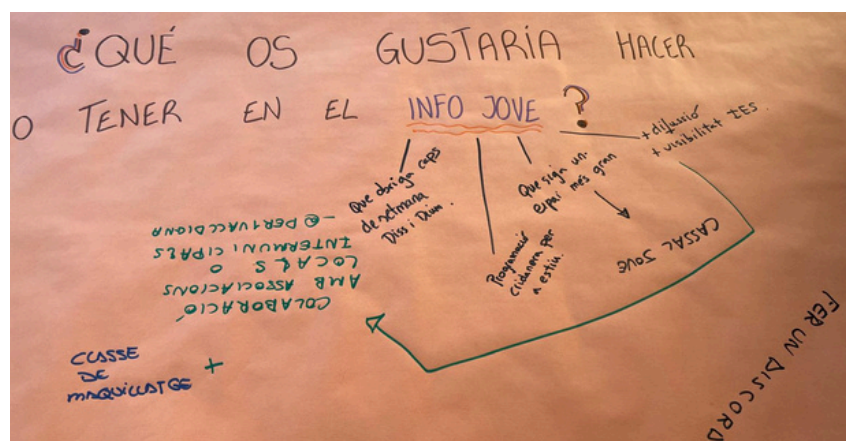 ¿QUÉ OS GUSTARÍA HACER
O TENER EN EL INFO JOVE?
+ difussió
+ visibilitat IES.
Que obriga caps
de setmana
Diss i Dium.
Programació
cridanera per
a estiu.
Que siga un
espai més gran
CASSAL JOVE
COLABORACIÓ
AMB ASSOCIACIONS
LOCALS O
INTERMUNICIPALS
-@PERIVACCDIONA
CLASSE
DE
MAQUILLATGE +
FER UN DISCORD